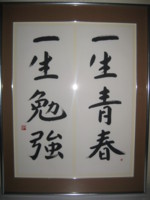 一生青春
一生勉強